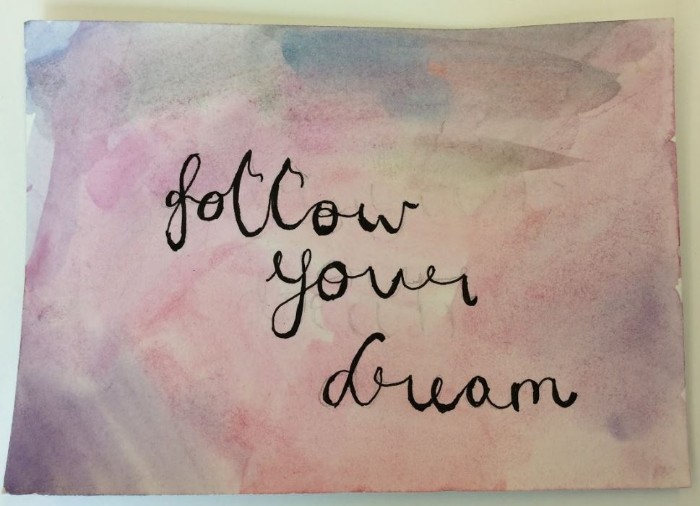 follow
your
dream